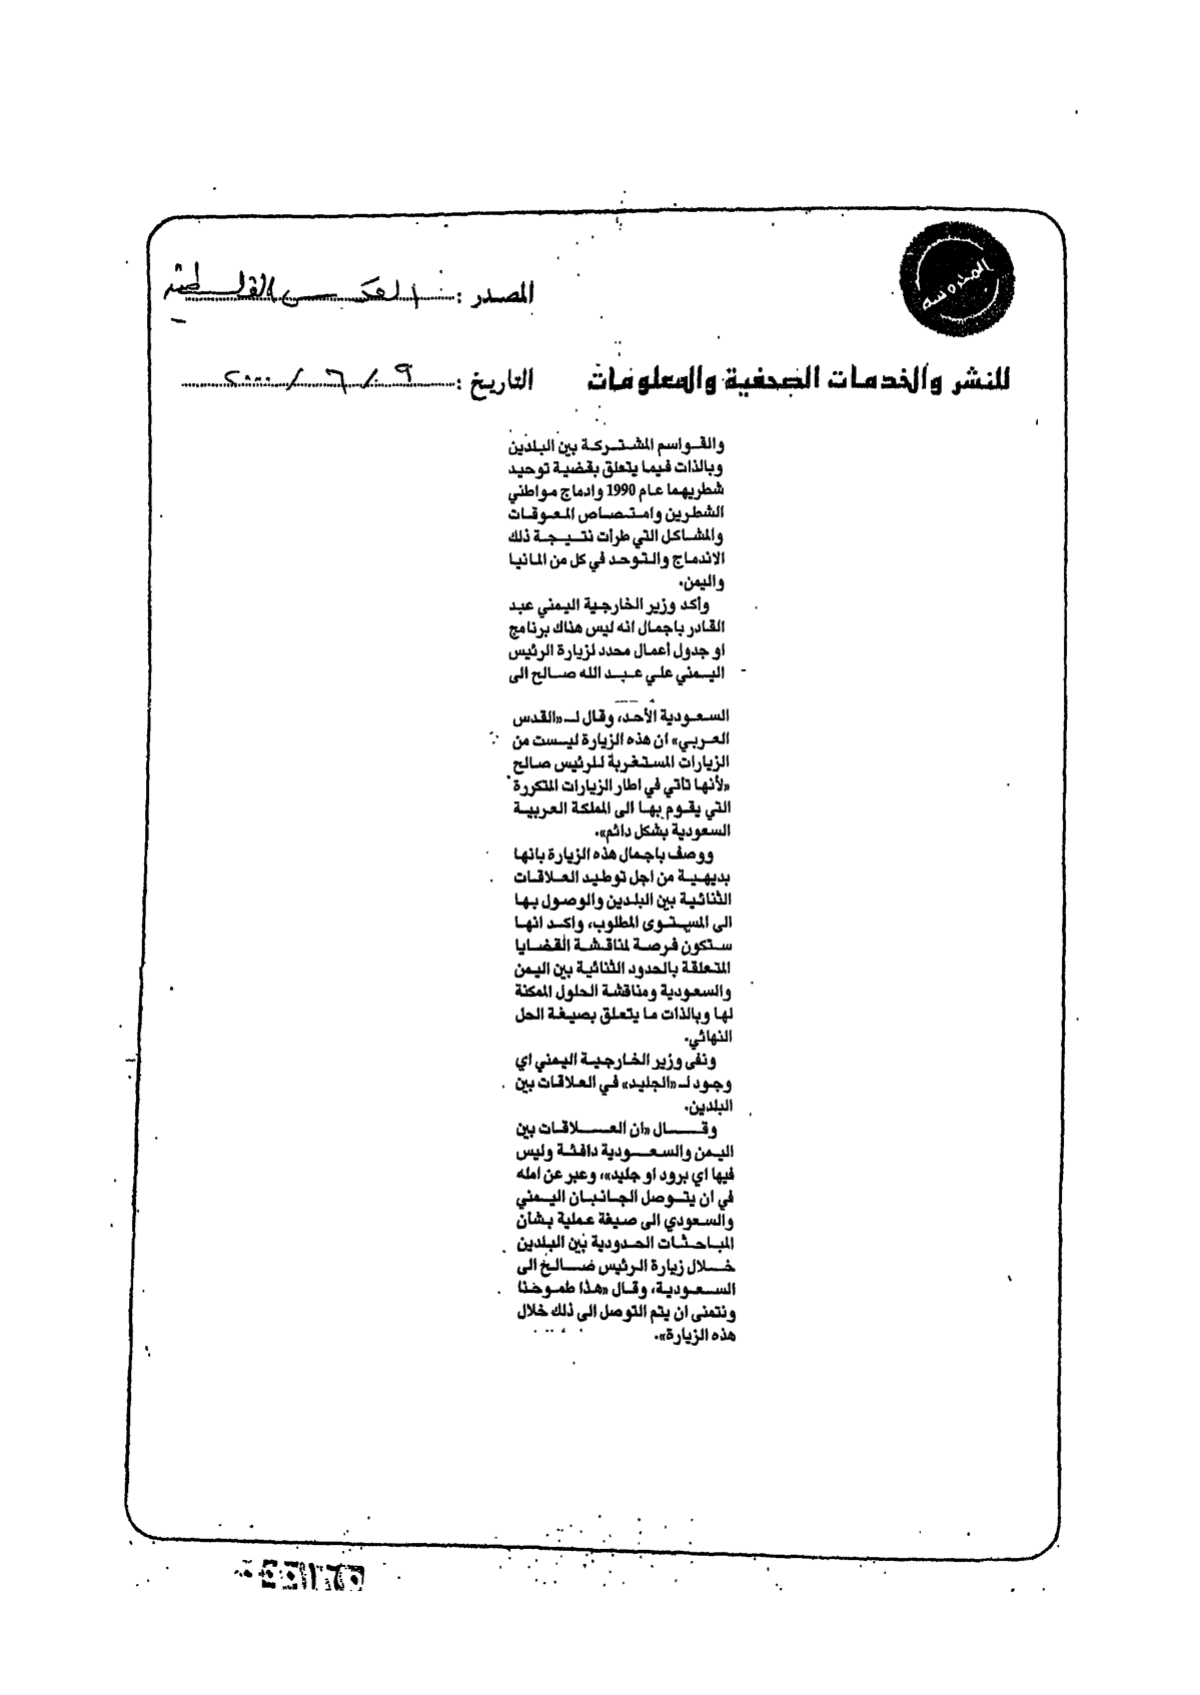 المحروسة
المصدر: القدس الفلسطينية
للنشر والخدمات الصحفية والمعلومات
التاريخ: ٩ / ٦ / ٢٠٠٠
والقواسم المشتركة بين البلدين
وبالذات فيما يتعلق بقضية توحيد
شطريهما عام 1990 وادماج مواطني
الشطرين وامتصاص المعوقات
والمشاكل التي طرأت نتيجة ذلك
الاندماج والتوحد في كل من المانيا
واليمن.
وأكد وزير الخارجية اليمني عبد
القادر باجمال انه ليس هناك برنامج
او جدول أعمال محدد لزيارة الرئيس
اليمني علي عبد الله صالح الى
السعودية الأحد، وقال لـ «القدس
العربي» ان هذه الزيارة ليست من
الزيارات المستغربة للرئيس صالح
«لأنها تأتي في اطار الزيارات المتكررة
التي يقوم بها الى المملكة العربية
السعودية بشكل دائم».
ووصف باجمال هذه الزيارة بانها
بديهية من اجل توطيد العلاقات
الثنائية بين البلدين والوصول بها
الى المستوى المطلوب، واكد انها
ستكون فرصة لمناقشة القضايا
المتعلقة بالحدود الثنائية بين اليمن
والسعودية ومناقشة الحلول الممكنة
لها وبالذات ما يتعلق بصيغة الحل
النهائي.
ونفى وزير الخارجية اليمني اي
وجود لـ «الجليد» في العلاقات بين
البلدين.
وقال «ان العلاقات بين
اليمن والسعودية دافئة وليس
فيها اي برود او جليد»، وعبر عن امله
في ان يتوصل الجانبان اليمني
والسعودي الى صيغة عملية بشأن
المباحثات الحدودية بين البلدين
خلال زيارة الرئيس صالح الى
السعودية، وقال «هذا طموحنا
ونتمنى ان يتم التوصل الى ذلك خلال
هذه الزيارة».